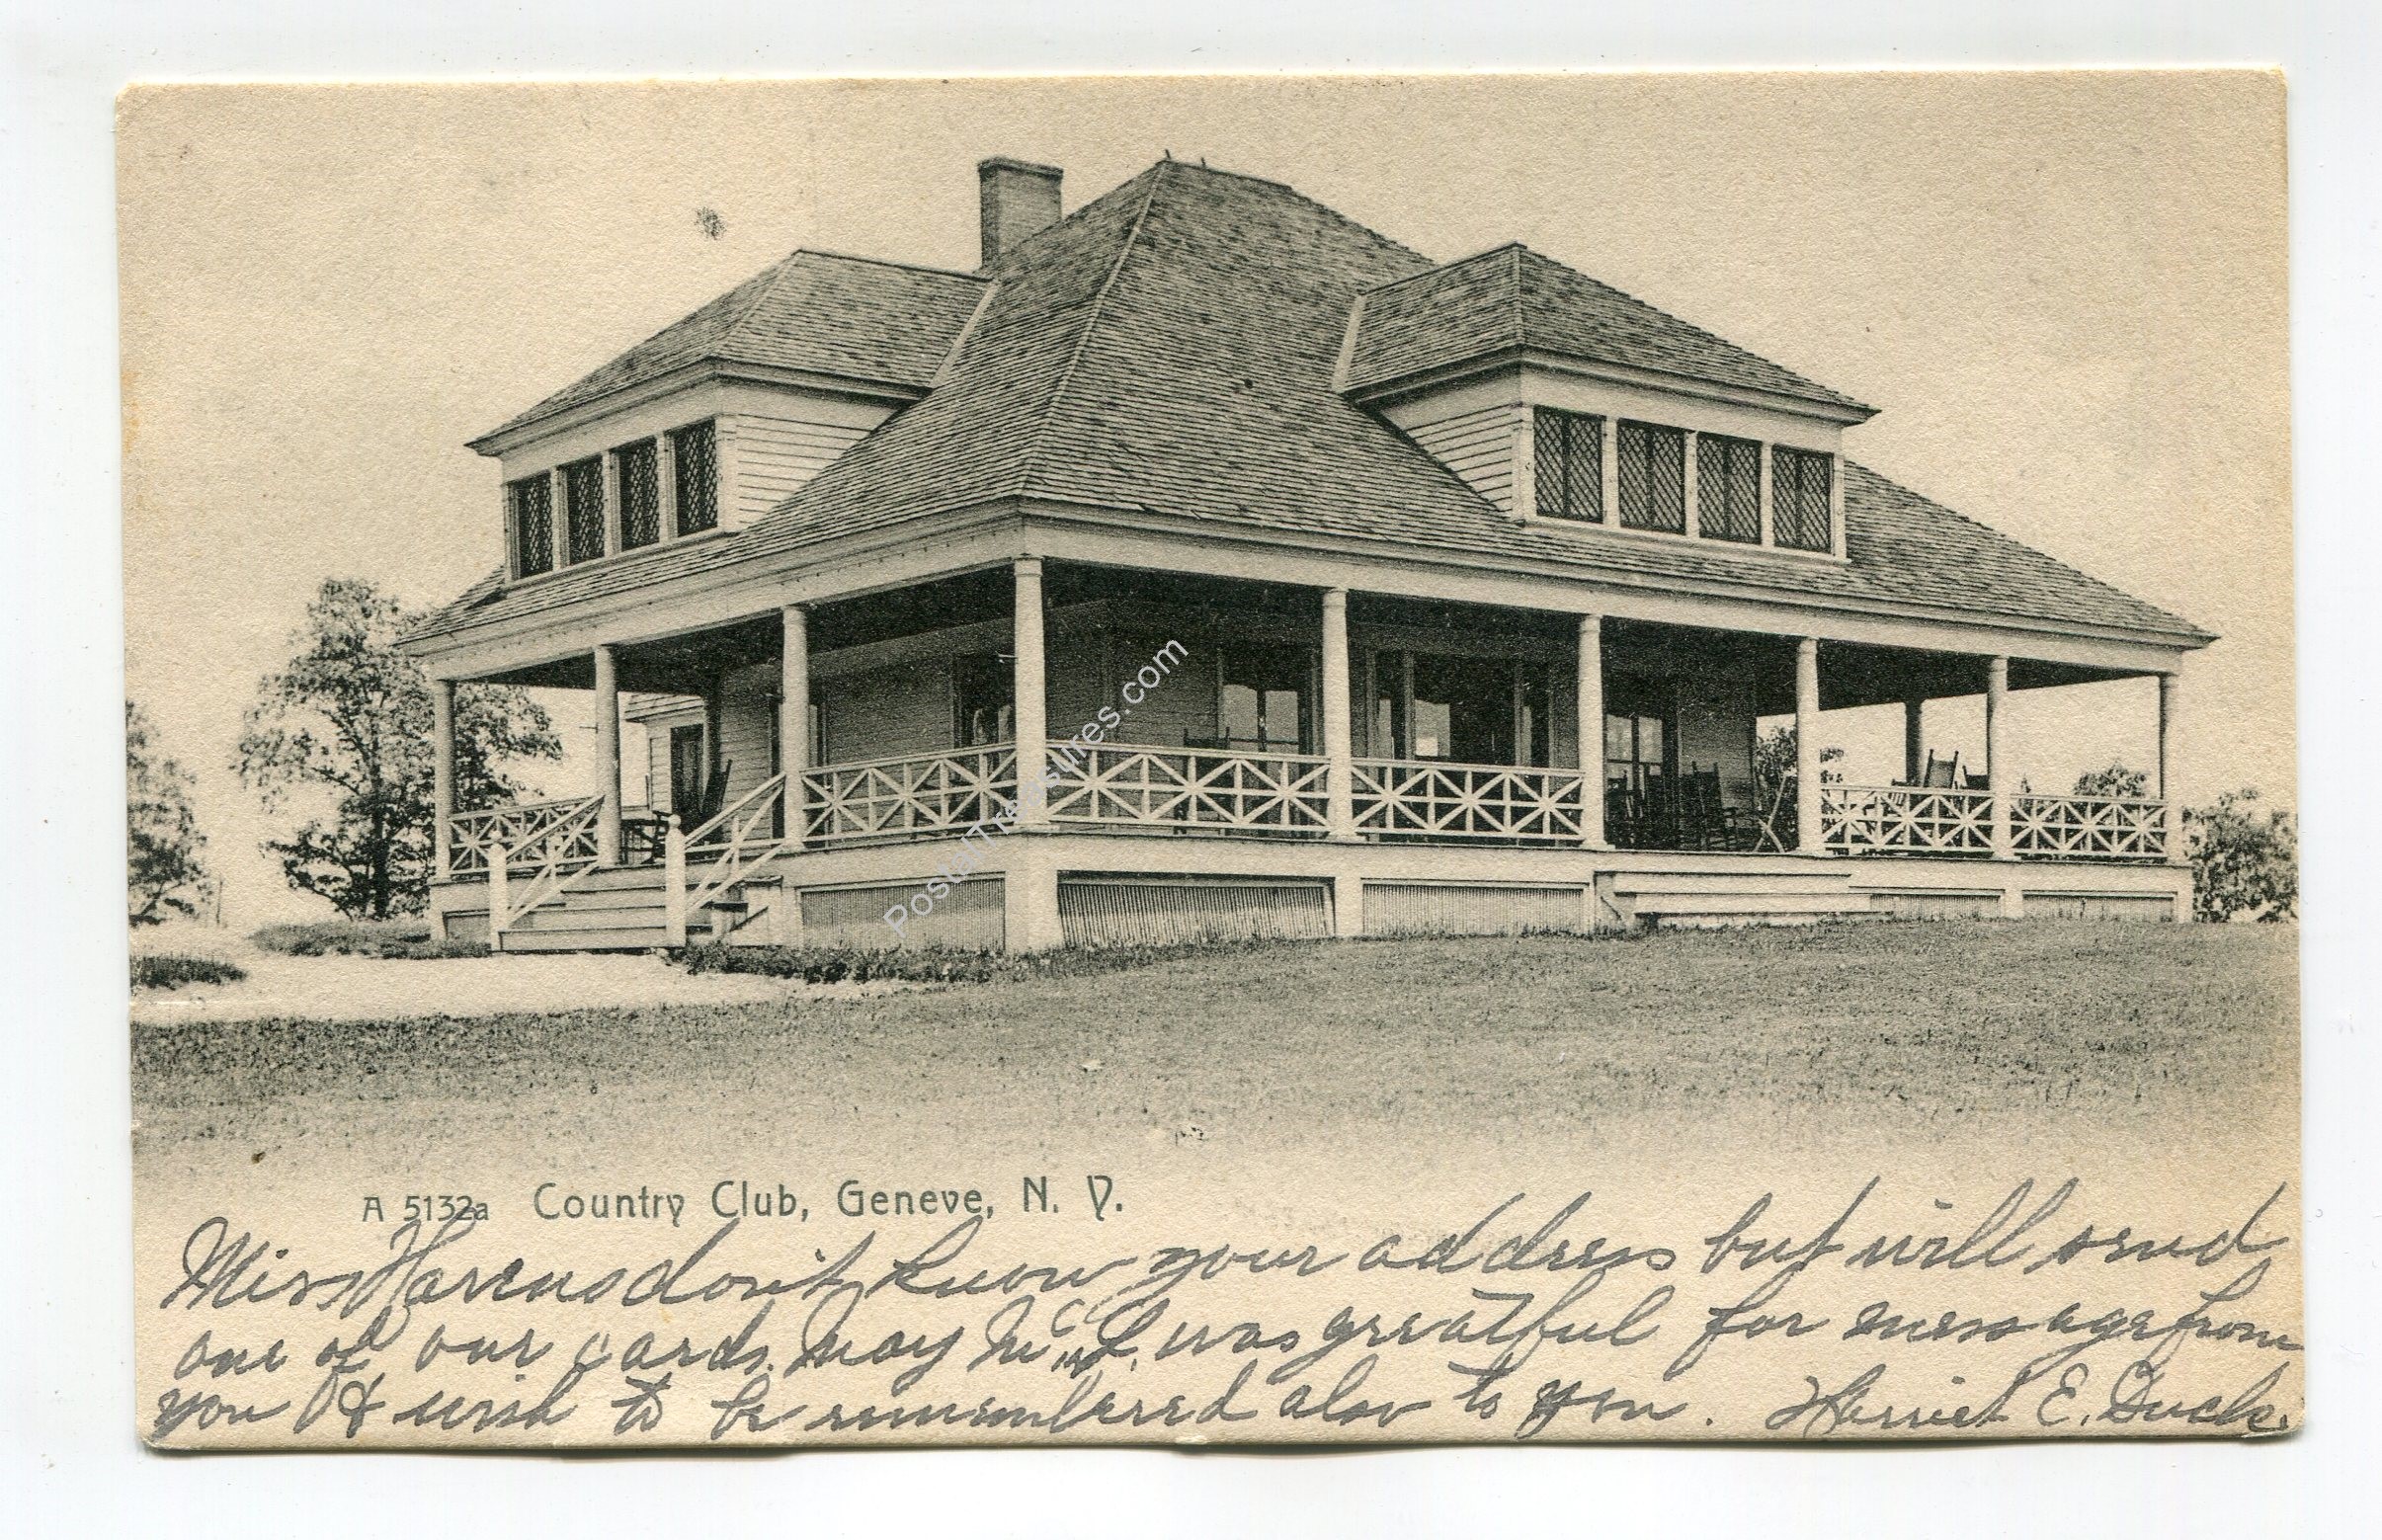 PostalTreasures.com
A 5132a Country Club, Geneve, N. Y.
Miss don't know your address but will send
one of our cards. May Mc L. was greatful for message from
you & wish to be remembered also to you. Harriet E. Buck.